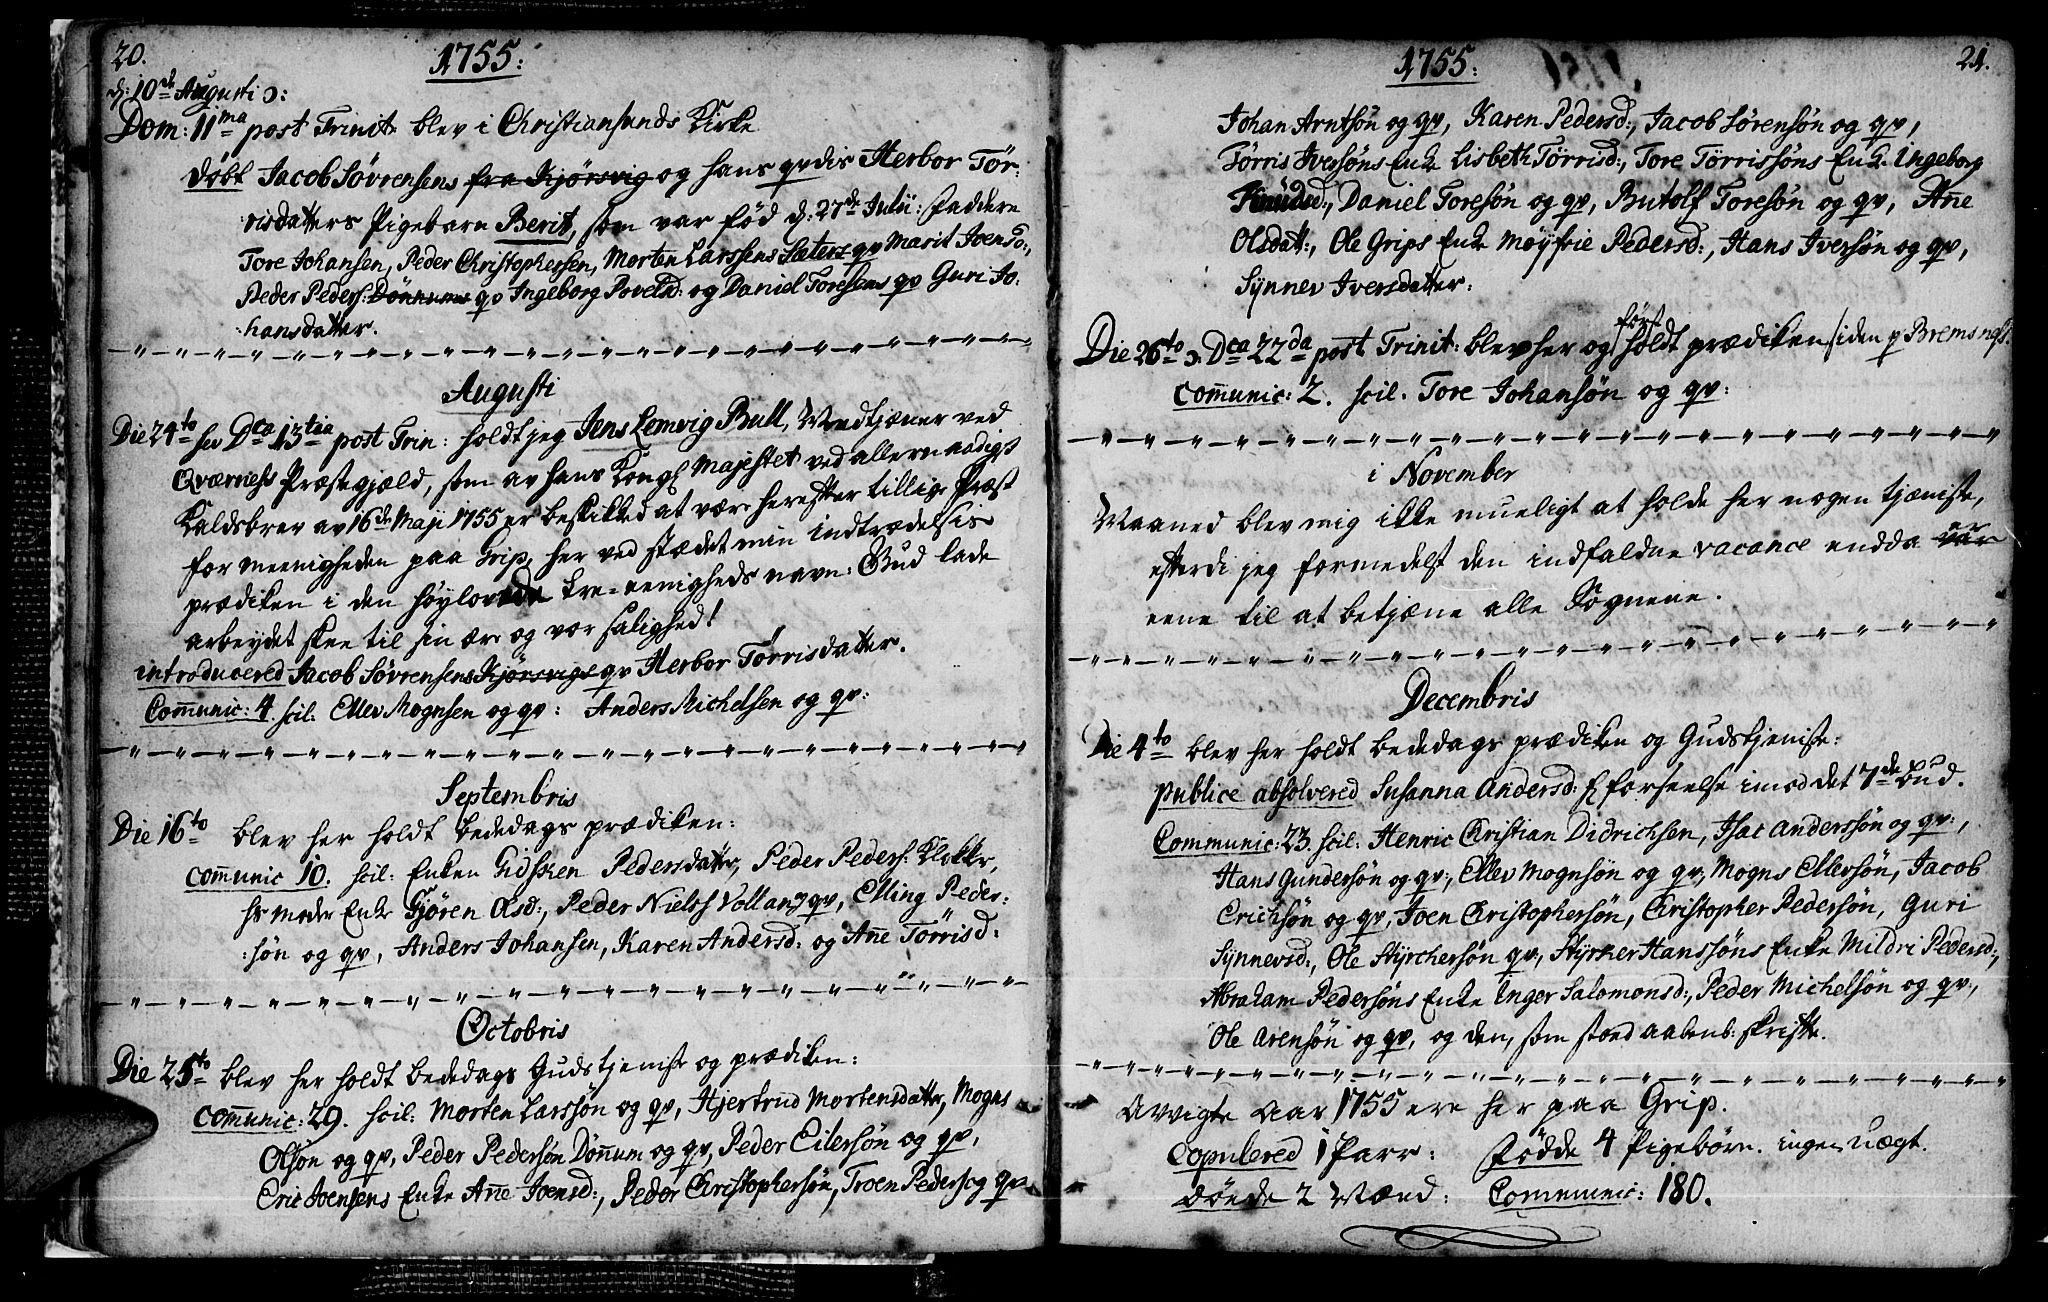 20.
1755:
d: 10de Augusti ɔ:
Dom: 11ma post Trinit blev i Christiansunds Kirke
døbt Jacob Søvrensens fra Kjørsvig og hans qvdis Herbor Tør-
risdatters Pigebarn Berit, som var fød d: 27de Julii: Faddere
Tore Johansen, Peder Christophersen, Morten Larssens Sæters qv Marit Joensd:,
Peder Peders: Dønnums qv Ingeborg Povelsd: og Daniel Toresens qv Guri Jo-
hansdatter.
Augusti
Die 24to sev Dca 13tia post Trin: holdt jeg Jens Lemvig Bull, Medtjæner ved
Qværnes Præstegjæld, som av hans Kongl Majestet ved allernaadigst
Kaldsbrev av 16de Maji 1755 er beskikked at være herefter tillige Præst
for meenigheden paa Grip, her ved stædet min indtrædelsis
prædiken i den høylovede tre-eenigheds navn: Gud lade
arbeydet skee til sin ære og vor salighed!
introducered Jacob Søvrensens Kjørsvigs qv Herbor Tørrisdatter.
Com̄unic: 4. scil: Ellev Mognsen og qv: Anders Michelsen og qv:
Septembris
Die 16to blev her holdt bededags prædiken:
com̄unic 10. scil: Enken Gidsken Pedersdatter, Peder Peders: Klokker,
hs moder Enke Gjøren Olsd:, Peder Niels Vollans qv, Elling Peder-
søn og qv, Anders Johansen, Karen Andersd: og An̄e Tørrisd:
Octobris
Die 25to blev her holdt bededags Gudstjeniste og prædiken:
com̄unic: 29. scil: Morten Larssøn og qv, Hjertrud Mortensdatter, Mogns
Olsøn og qv, Peder Pedersøn Døn̄um og qv, Peder Eilersøn og qv,
Eric Joensens Enke An̄e Joensd:, Peder Christophersøn, Troen Peders og qv
1755:
21.
Johan Arntsøn og qv, Karen Pedersd:, Jacob Sørensøn og qv,
Tørris Iversøns Enke Lisbeth Tørrisd:, Tore Tørrissøns Enke Ingeborg
Knudsd:, Daniel Toresøn og qv, Butolf Toresøn og qv, An̄e
Olsdatt:, Ole Grips Enke Møyfrie Pedersd:, Hans Iversøn og qv,
Synnev Iversdatter:
Die 26to ɔ: Dca 22da post Trinit: blev her og først holdt prædiken siden p Bremsnes.
com̄unic: 2. scil. Tore Johansøn og qv:
i November
Maaned blev mig ikke mueligt at holde her nogen tjæniste,
efterdi jeg formedelst den indfaldne vacance endda var er
eene til at betjæne alle Sognene.
Decembris
Die 4to blev her holdt bededags prædiken og Gudstjeniste:
publice absolvered Susanna Andersd: f forseelse imod det 7de bud.
Communic: 23. scil: Henric Christian Didrichsen, Isac Anderssøn og qv:,
Hans Gundersøn og qv:, Ellev Mognsøn og qv, Mogns Ellersøn, Jacob
Erichsøn og qv, Joen Christophersøn, Christopher Pedersøn, Guri
Synnevsd:, Ole Styrchersøn qv:, Styrker Hanssøns Enke Mildri Pedersd:,
Abraham Pedersøns Enke Inger Salomonsd:, Peder Michelsøn og qv,
Ole Arensøn og qv, og den, som stoed aabenb: skrifte.
Avvigte Aar 1755 ere her paa Grip.
Copulered 1 Parr: Fødde 4 Pigebørn. ingen uægt.
Dönde 2 Mænd: Communic: 180.